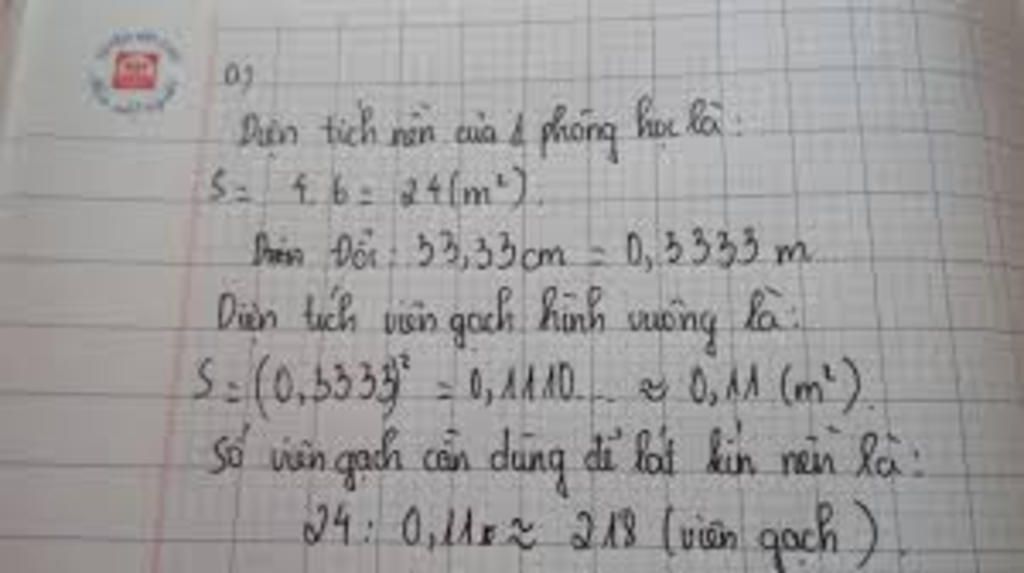 a)
Diện tích nền của 1 phòng học là:
S = 4.6 = 24 (m²).
Đổi: 33,33cm = 0,3333 m
Diện tích viên gạch hình vuông là:
S = (0,3333)² = 0,1110... ≈ 0,11 (m²).
Số viên gạch cần dùng để lát kín nền là:
24 : 0,11 ≈ 218 (viên gạch).